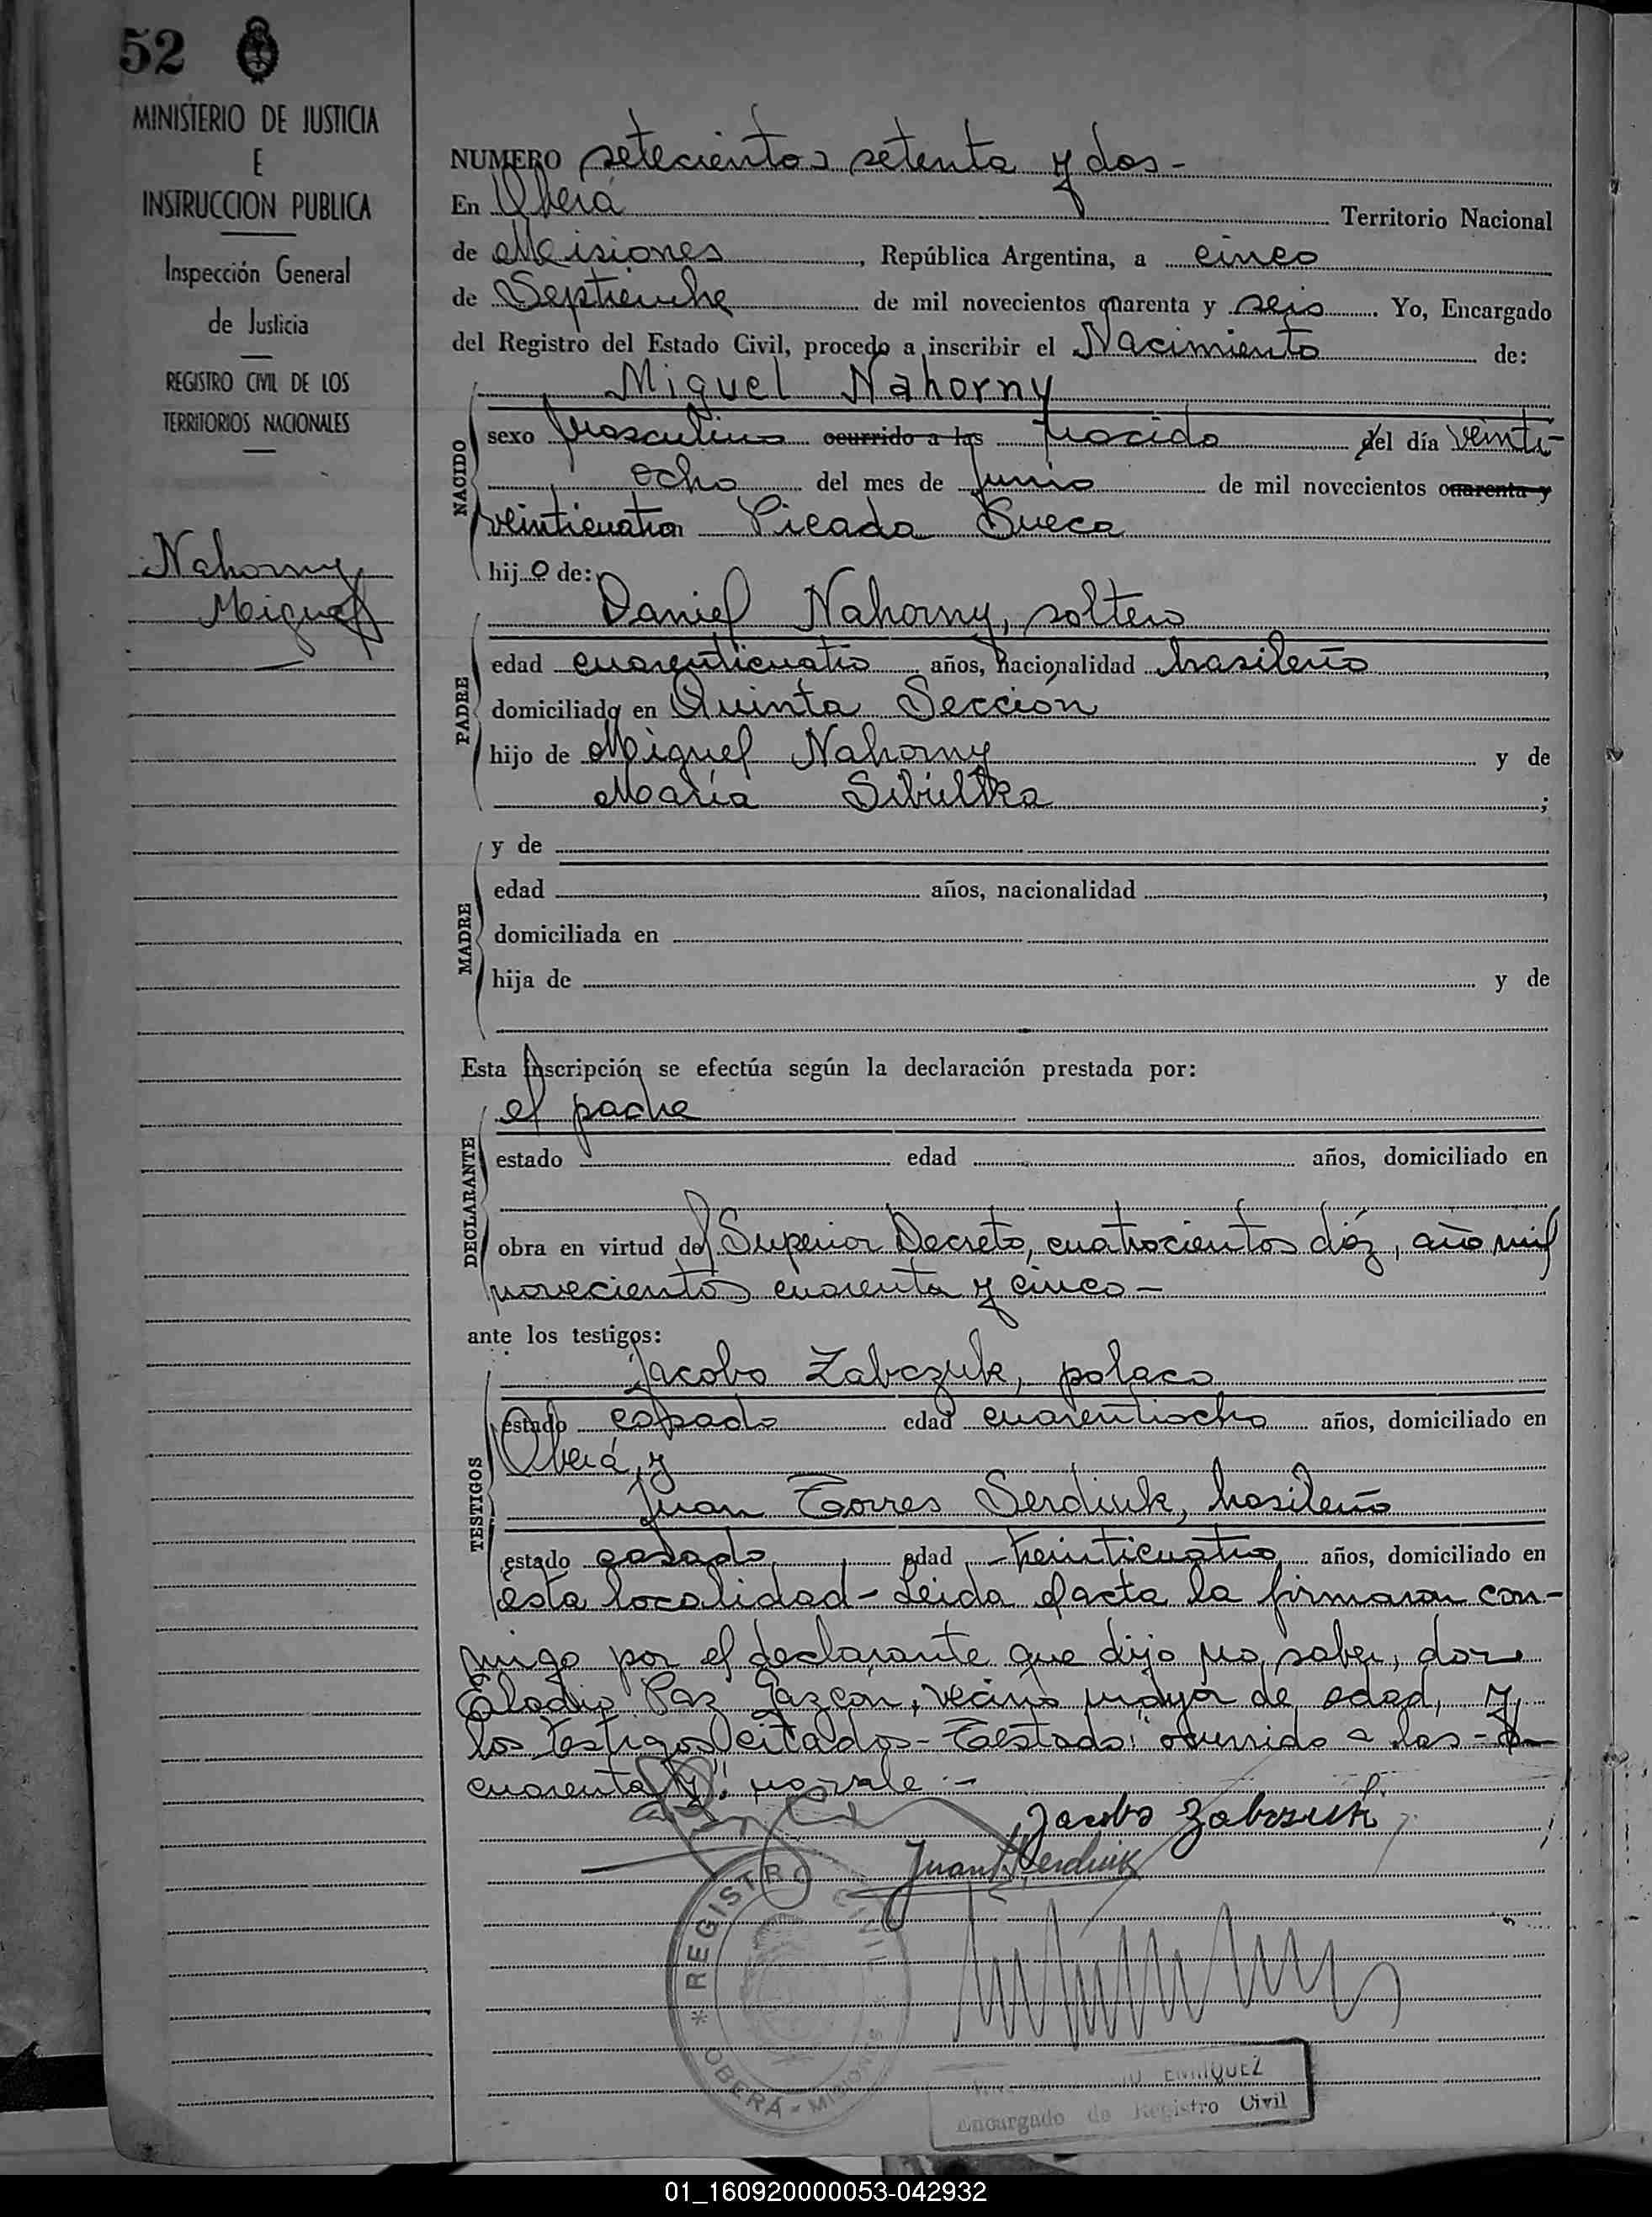 52
MINISTERIO DE JUSTICIA
E
INSTRUCCION PUBLICA
Inspección General
de Justicia
REGISTRO CIVIL DE LOS
TERRITORIOS NACIONALES
Nahorny
Miguel
NUMERO setecientos setenta y dos-
En Oberá Territorio Nacional
de Misiones, República Argentina, a cinco
de Septiembre de mil novecientos cuarenta y seis. Yo, Encargado
del Registro del Estado Civil, procedo a inscribir el Nacimiento de:
NACIDO
Miguel Nahorny
sexo masculino ocurrido a las nacido del día veinti-
ocho del mes de junio de mil novecientos cuarenta y
veinticuatro Picada Sueca
hijo de:
PADRE
Daniel Nahorny, soltero
edad cuarenticuatro años, nacionalidad brasileño,
domiciliado en Quinta Sección
hijo de Miguel Nahorny y de
María Sibultka;
MADRE
y de
edad años, nacionalidad,
domiciliada en
hija de y de
Esta inscripción se efectúa según la declaración prestada por:
DECLARANTE
el padre
estado edad años, domiciliado en
obra en virtud del Superior Decreto, cuatrocientos diéz, año mil
novecientos cuarenta y cinco-
ante los testigos:
TESTIGOS
Jacobo Zabczuk, polaco
estado casado edad cuarentiocho años, domiciliado en
Oberá, y
Juan Torres Serdiuk, brasileño
estado casado edad treinticuatro años, domiciliado en
esta localidad- Leida el acta la firmaron con-
migo por el declarante que dijo no saber, don
Eladio Paz Gazcon, vecino mayor de edad, y
los testigos citados- Testado: ocurrido a las-
cuarenta y: no vale.-
Jacobo Zabczuk
Juan T. Serdiuk
REGISTRO CIVIL
OBERÁ - MISIONES
ENRIQUEZ
Encargado de Registro Civil
01_160920000053-042932